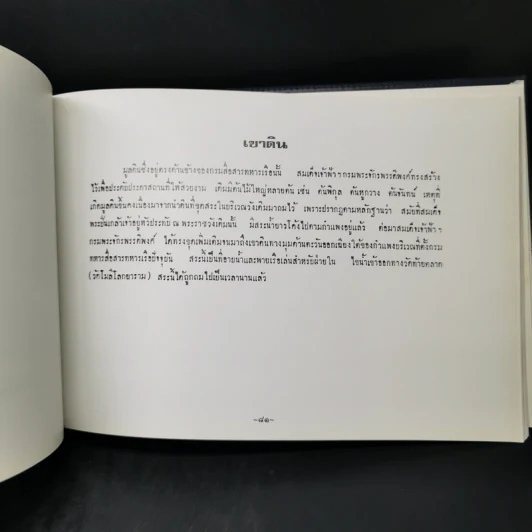 เขาดิน
มูลดินซึ่งอยู่ตรงด้านข้างของกรมสื่อสารทหารเรือนั้น สมเด็จเจ้าฟ้า ฯ กรมพระจักรพรรดิพงศ์ทรงสร้าง
ไว้เพื่อประดับประดาสถานที่ให้สวยงาม เดิมมีต้นไม้ใหญ่หลายต้น เช่น ต้นพิกุล ต้นหูกวาง ต้นจันทน์ เหตุที่
เกิดมูลดินขึ้นคงเนื่องมาจากนำดินที่ขุดสระในบริเวณวังเดิมมาถมไว้ เพราะปรากฏตามหลักฐานว่า สมัยที่สมเด็จ
พระปิ่นเกล้าเจ้าอยู่หัวประทับ ณ พระราชวังเดิมนั้น มีสระน้ำยาวโค้งไปตามกำแพงอยู่แล้ว ต่อมาสมเด็จเจ้าฟ้า ฯ
กรมพระจักรพรรดิพงศ์ ได้ทรงขุดเพิ่มเติมจนมาถึงเขาดินทางมุมด้านตะวันออกเฉียงใต้ของกำแพงบริเวณที่ตั้งกรม
ทหารสื่อสารทหารเรือปัจจุบัน สระนี้เป็นที่อาบน้ำและพายเรือเล่นสำหรับฝ่ายใน ไขน้ำเข้าออกทางวัดท้ายตลาด
(วัดโมลีโลกยาราม) สระนี้ได้ถูกถมไปเป็นเวลานานแล้ว
-๘๑-